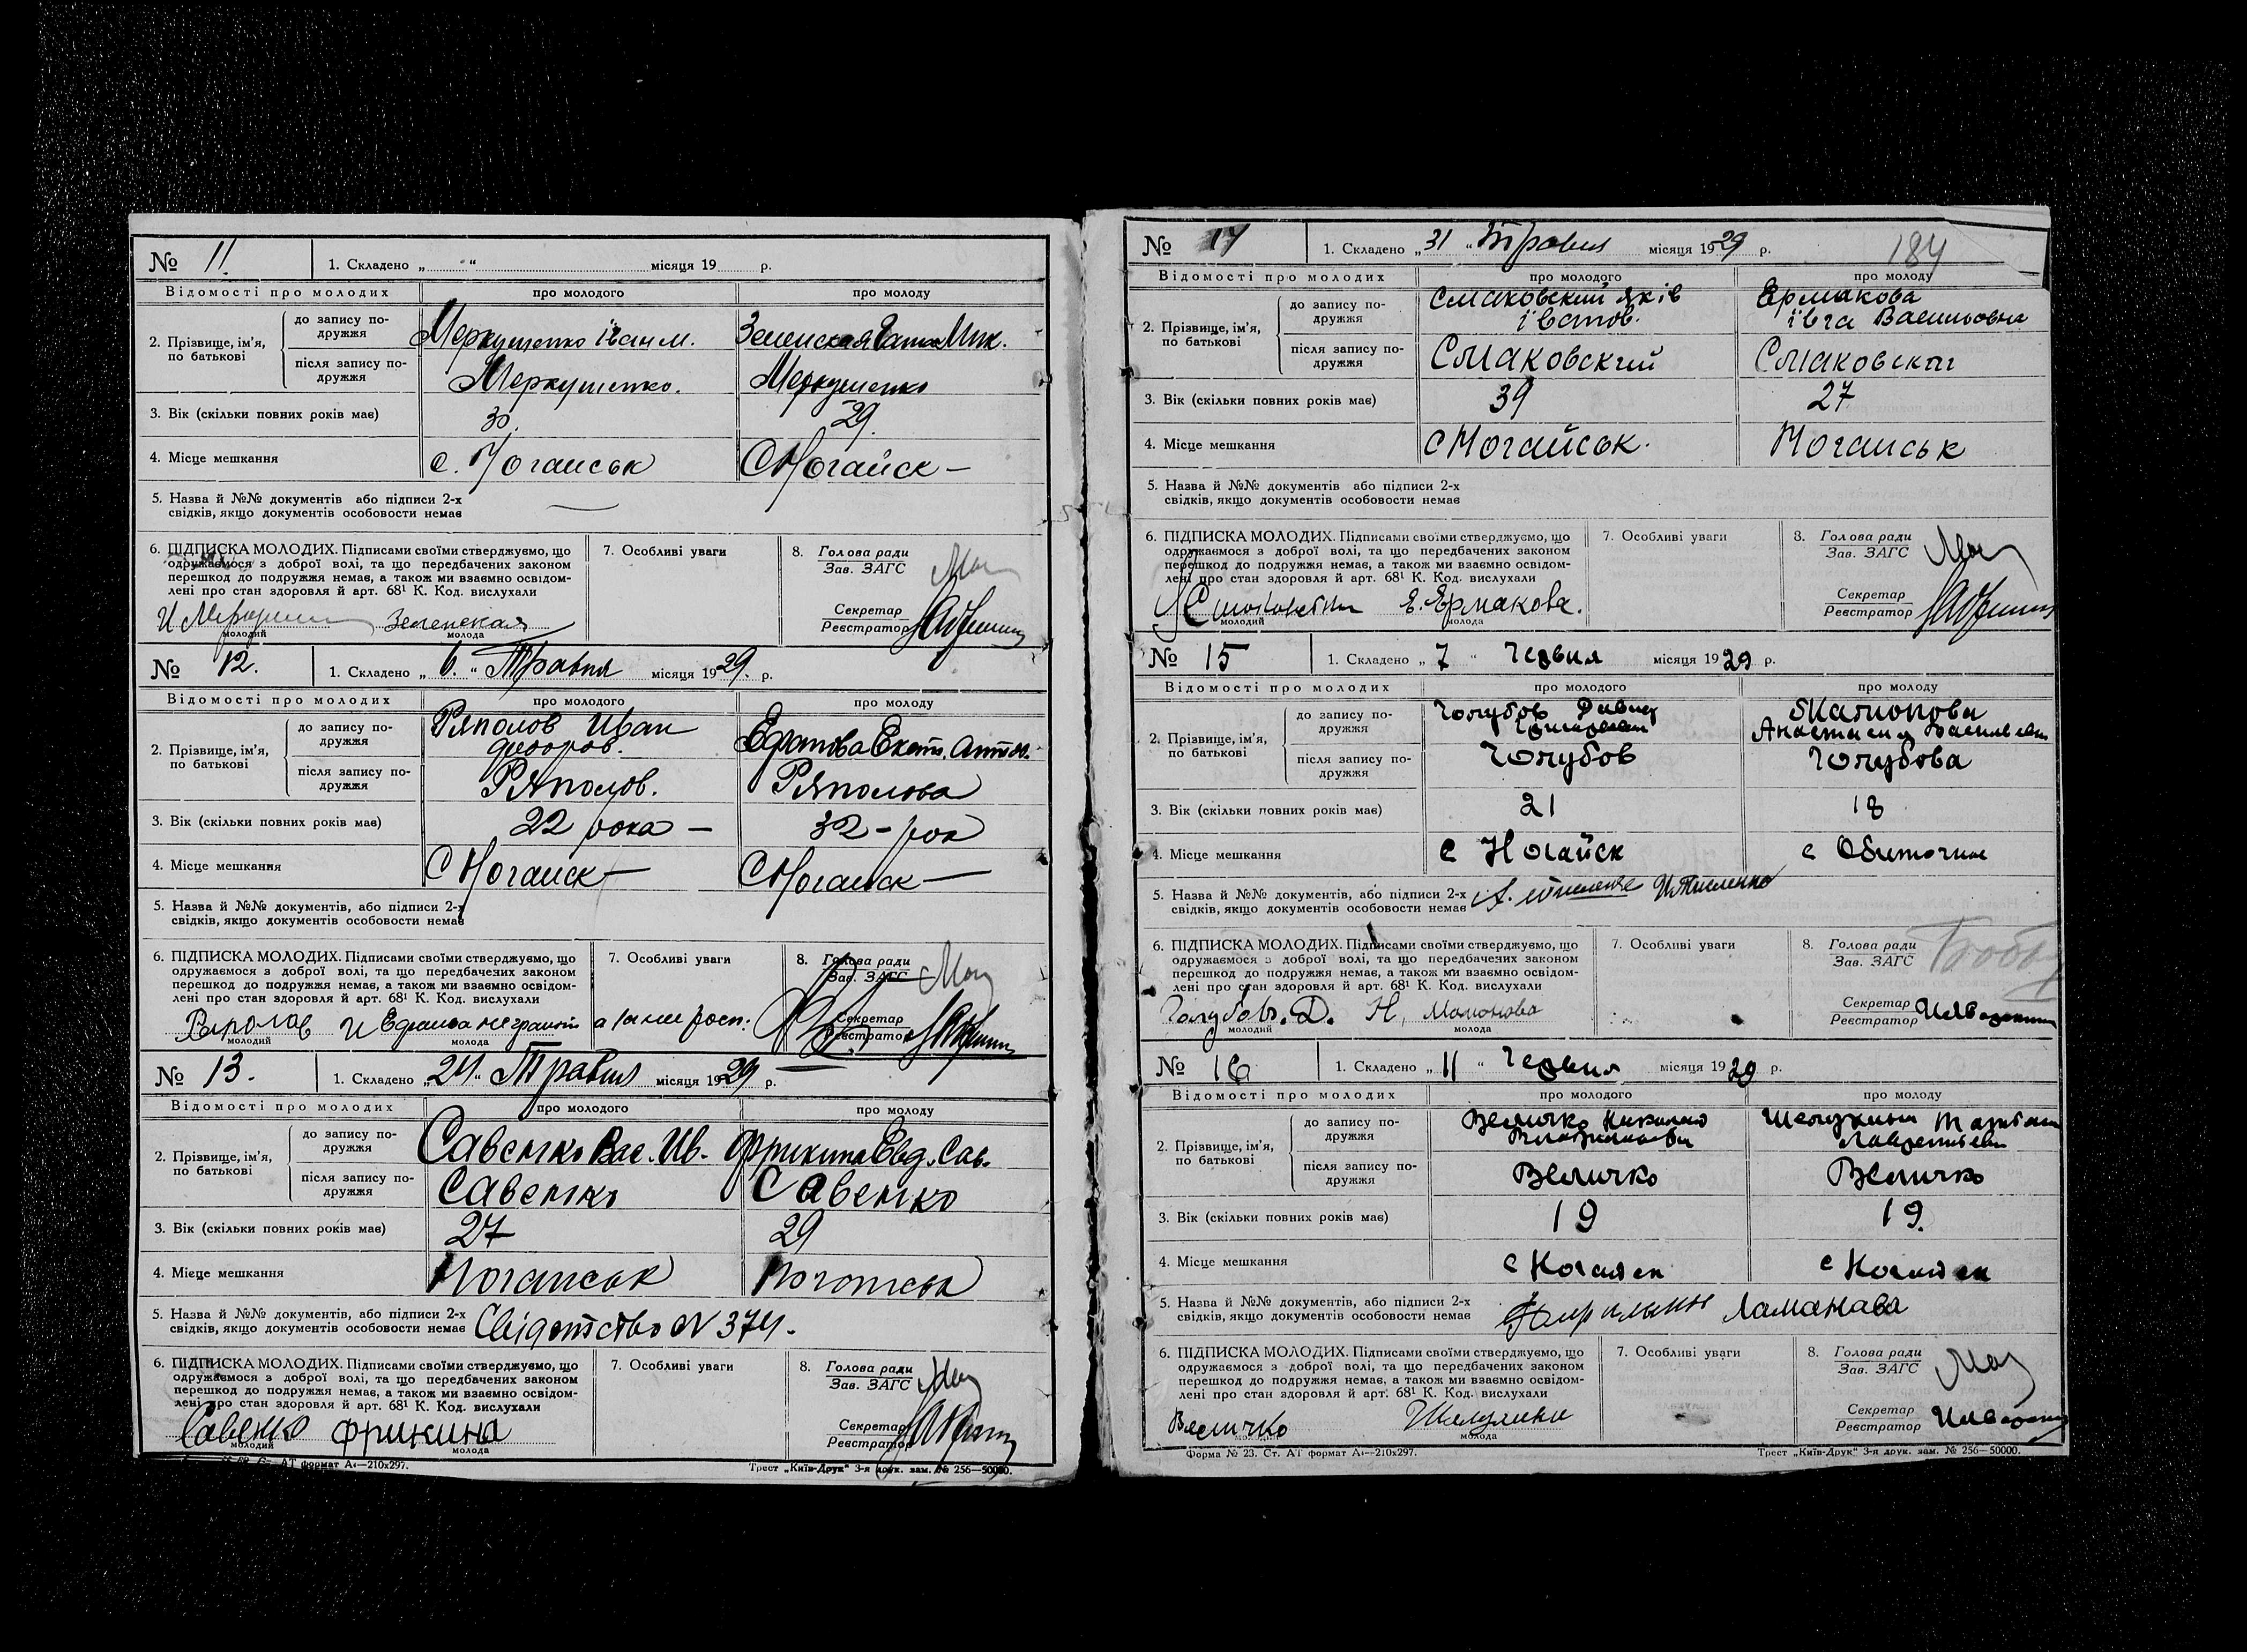 № 11. 1. Складено „ “ місяця 19 р.
Відомості про молодих про молодого про молоду
2. Прізвище, ім'я, по батькові
до запису подружжя Меркушенко Іван М. Зеленская Мик.
після запису подружжя Меркушенко. Меркушенко
3. Вік (скільки повних років має) 30. 29.
4. Місце мешкання с. Ногайськ С Ногайск —
5. Назва й №№ документів або підписи 2-х
свідків, якщо документів особовости немає —
6. ПІДПИСКА МОЛОДИХ. Підписами своїми стверджуємо, що
одружаємося з доброї волі, та що передбачених законом
перешкод до подружжя немає, а також ми взаємно освідом-
лені про стан здоровля й арт. 68¹ К. Код. вислухали
Зеленская
молодий молода
7. Особливі уваги
8. Голова ради
Зав. ЗАГС
Секретар
Реєстратор
№ 12. 1. Складено „ 6. “ Травня місяця 1929. р.
Відомості про молодих про молодого про молоду
2. Прізвище, ім'я, по батькові
до запису подружжя Ряполов Иван Федоров. Екат. Антон.
після запису подружжя Ряполов. Ряполова
3. Вік (скільки повних років має) 22 рока — 32 – рок
4. Місце мешкання С Ногайск — С Ногайск —
5. Назва й №№ документів, або підписи 2-х
свідків, якщо документів особовости немає
6. ПІДПИСКА МОЛОДИХ. Підписами своїми стверджуємо, що
одружаємося з доброї волі, та що передбачених законом
перешкод до подружжя немає, а також ми взаємно освідом-
лені про стан здоровля й арт. 68¹ К. Код. вислухали
молодий молода
7. Особливі уваги
8. Голова ради
Зав. ЗАГС
Секретар
Реєстратор
№ 13. 1. Складено „ 24 “ Травня місяця 1929 р.
Відомості про молодих про молодого про молоду
2. Прізвище, ім'я, по батькові
до запису подружжя Савенко Вас. Ив. Фрикина Евд. Сав.
після запису подружжя Савенко Савенко
3. Вік (скільки повних років має) 27 29
4. Місце мешкання Ногайськ Ногайськ
5. Назва й №№ документів, або підписи 2-х
свідків, якщо документів особовости немає Свідотство N 374.
6. ПІДПИСКА МОЛОДИХ. Підписами своїми стверджуємо, що
одружаємося з доброї волі, та що передбачених законом
перешкод до подружжя немає, а також ми взаємно освідом-
лені про стан здоровля й арт. 68¹ К. Код. вислухали
Савенко Фрикина
молодий молода
7. Особливі уваги
8. Голова ради
Зав. ЗАГС
Секретар
Реєстратор
АТ формат А₄—210х297. Трест „Київ-Друк“ 3-я друк. зам. № 256—50000.
184
№ 14 1. Складено „ 31 “ Травня місяця 1929 р.
Відомості про молодих про молодого про молоду
2. Прізвище, ім'я, по батькові
до запису подружжя Смаковский Яків Єрмакова Івга Васильовна
після запису подружжя Смаковский Смаковская
3. Вік (скільки повних років має) 39 27
4. Місце мешкання С Ногайськ. Ногайськ
5. Назва й №№ документів або підписи 2-х
свідків, якщо документів особовости немає
6. ПІДПИСКА МОЛОДИХ. Підписами своїми стверджуємо, що
одружаємося з доброї волі, та що передбачених законом
перешкод до подружжя немає, а також ми взаємно освідом-
лені про стан здоровля й арт. 68¹ К. Код. вислухали
Е. Ермакова.
молодий молода
7. Особливі уваги
8. Голова ради
Зав. ЗАГС
Секретар
Реєстратор
№ 15 1. Складено „ 7 “ Червня місяця 1929 р.
Відомості про молодих про молодого про молоду
2. Прізвище, ім'я, по батькові
до запису подружжя Голубов Давид Анастасия
після запису подружжя Голубов Голубова
3. Вік (скільки повних років має) 21 18
4. Місце мешкання с Ногайск с Обиточное
5. Назва й №№ документів, або підписи 2-х
свідків, якщо документів особовости немає
6. ПІДПИСКА МОЛОДИХ. Підписами своїми стверджуємо, що
одружаємося з доброї волі, та що передбачених законом
перешкод до подружжя немає, а також ми взаємно освідом-
лені про стан здоровля й арт. 68¹ К. Код. вислухали
Голубов. Д. Н.
молодий молода
7. Особливі уваги
8. Голова ради
Зав. ЗАГС
Секретар
Реєстратор
№ 16 1. Складено „ 11 “ Червня місяця 1929 р.
Відомості про молодих про молодого про молоду
2. Прізвище, ім'я, по батькові
до запису подружжя Величко
після запису подружжя Величко Величко
3. Вік (скільки повних років має) 19 19.
4. Місце мешкання с Ногайск с Ногайск
5. Назва й №№ документів, або підписи 2-х
свідків, якщо документів особовости немає
6. ПІДПИСКА МОЛОДИХ. Підписами своїми стверджуємо, що
одружаємося з доброї волі, та що передбачених законом
перешкод до подружжя немає, а також ми взаємно освідом-
лені про стан здоровля й арт. 68¹ К. Код. вислухали
Величко
молода
7. Особливі уваги
8. Голова ради
Зав. ЗАГС
Секретар
Реєстратор
Форма № 23. Ст. АТ формат А₄—210х297. Трест „Київ-Друк“ 3-я друк. зам. № 256—50000.